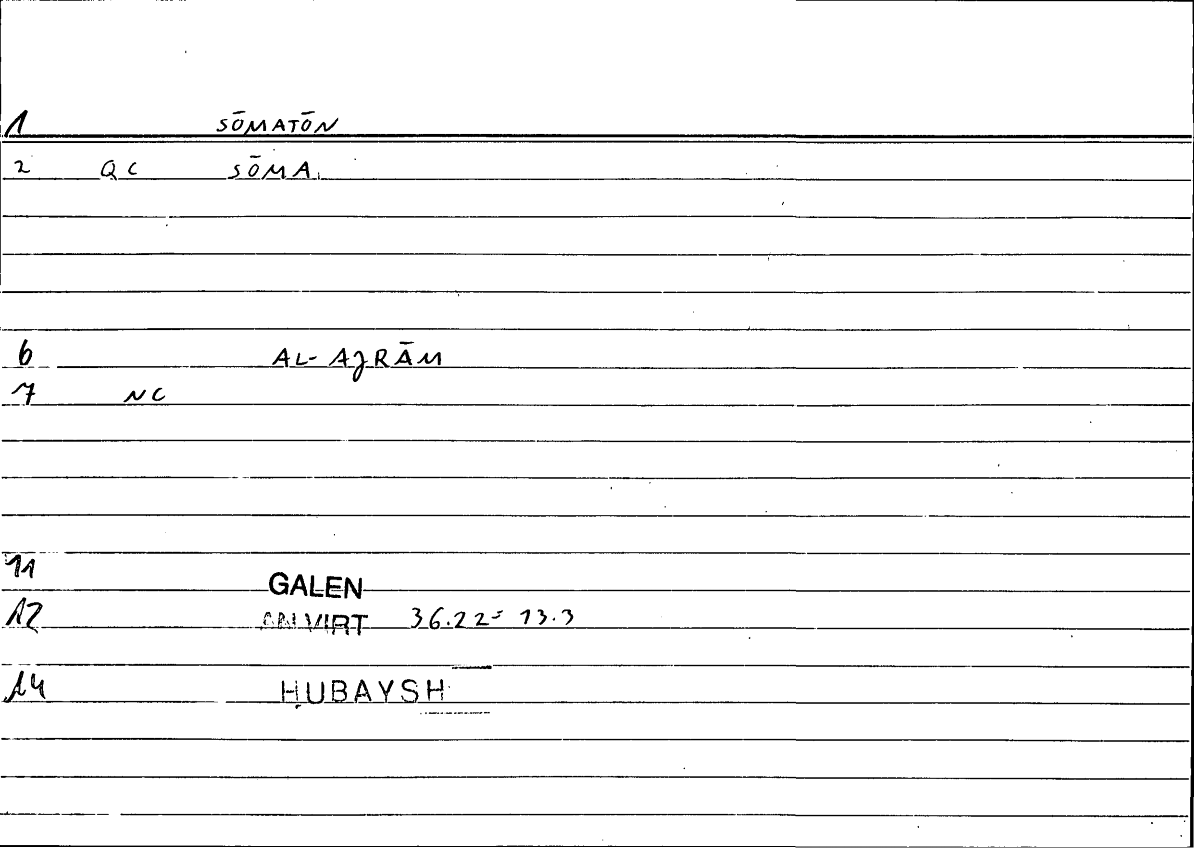 1 SŌMATŌN
2 QC SŌMA
6 AL-AJRĀM
7 NC
11 GALEN
12 AN VIRT 36.22 = 13.3
14 ḤUBAYSH